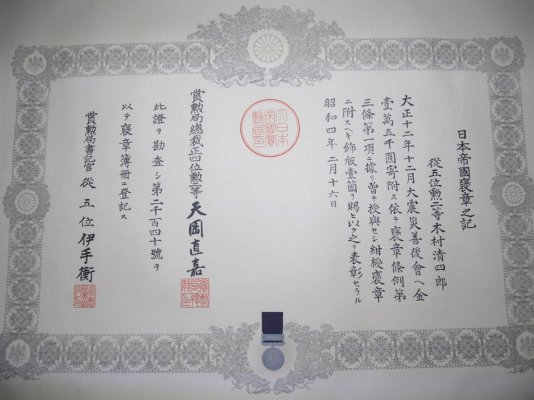 日本帝國褒章之記
從五位勲二等木村清四郎
大正十二年十二月大震災善後會ヘ金
壹萬五千圓寄附ス依テ褒章條例第
三條第一項ニ據リ曽テ授與セシ紺綬褒章
ニ附スヘキ飾版壹箇ヲ賜ヒ以テ之ヲ表彰セラル
昭和四年二月十六日
賞勲局總裁正四位勲二等天岡直嘉
此證ヲ勘査シ第二千百四十號ヲ
以テ褒章簿冊ニ登記ス
賞勲局書記官從五位伊手衡